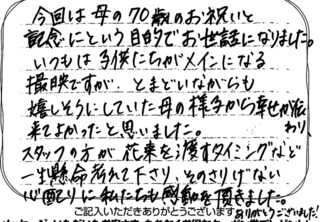 今回は母の70歳のお祝いと
記念にという目的でお世話になりました。
いつもは子供たちがメインになる
撮映ですが、とまどいながらも
嬉しそうにしていた母の様子から幸せが伝わり、
来てよかったと思いました。
スタッフの方が花束を渡すタイミングなど
一生懸命考えて下さり、そのさりげない
心配りに私たちも感動を頂きました。
ありがとうございました!
ご記入いただきありがとうございます